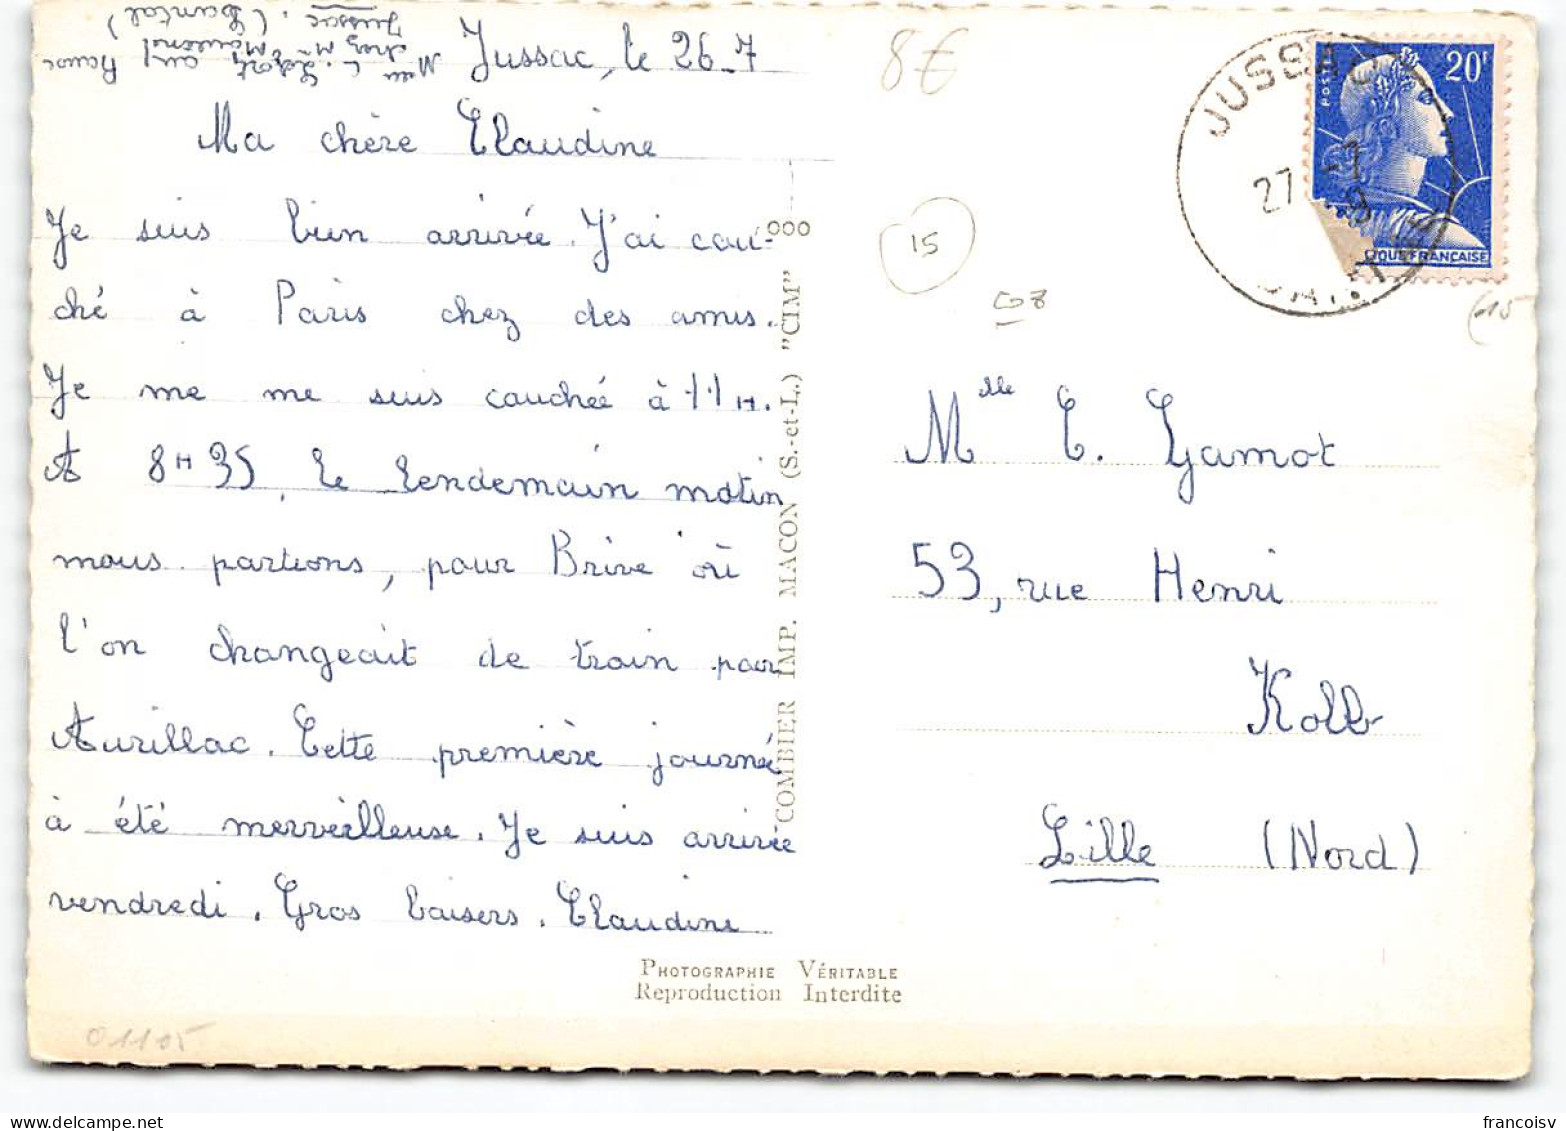 Jussac, le 26-7
Ma chère Claudine
Je suis bien arrivée. J'ai cou-
ché à Paris chez des amis.
Je me me suis couchée à 11H.
A 8H35, le lendemain matin
nous partions, pour Brive où
l'on changeait de train pour
Aurillac. Cette première journée
à été merveilleuse. Je suis arrivée
vendredi. Gros baisers. Claudine
Jussac. (Cantal)
8€
15
JUSSAC
27 -7
20F
POSTES
IQUE FRANÇAISE
15
Mlle C. Gamot
53, rue Henri
Kolb
Lille (Nord)
COMBIER IMP. MACON (S.-et-L.) "CIM"
PHOTOGRAPHIE VÉRITABLE
Reproduction Interdite
01105
francoisv